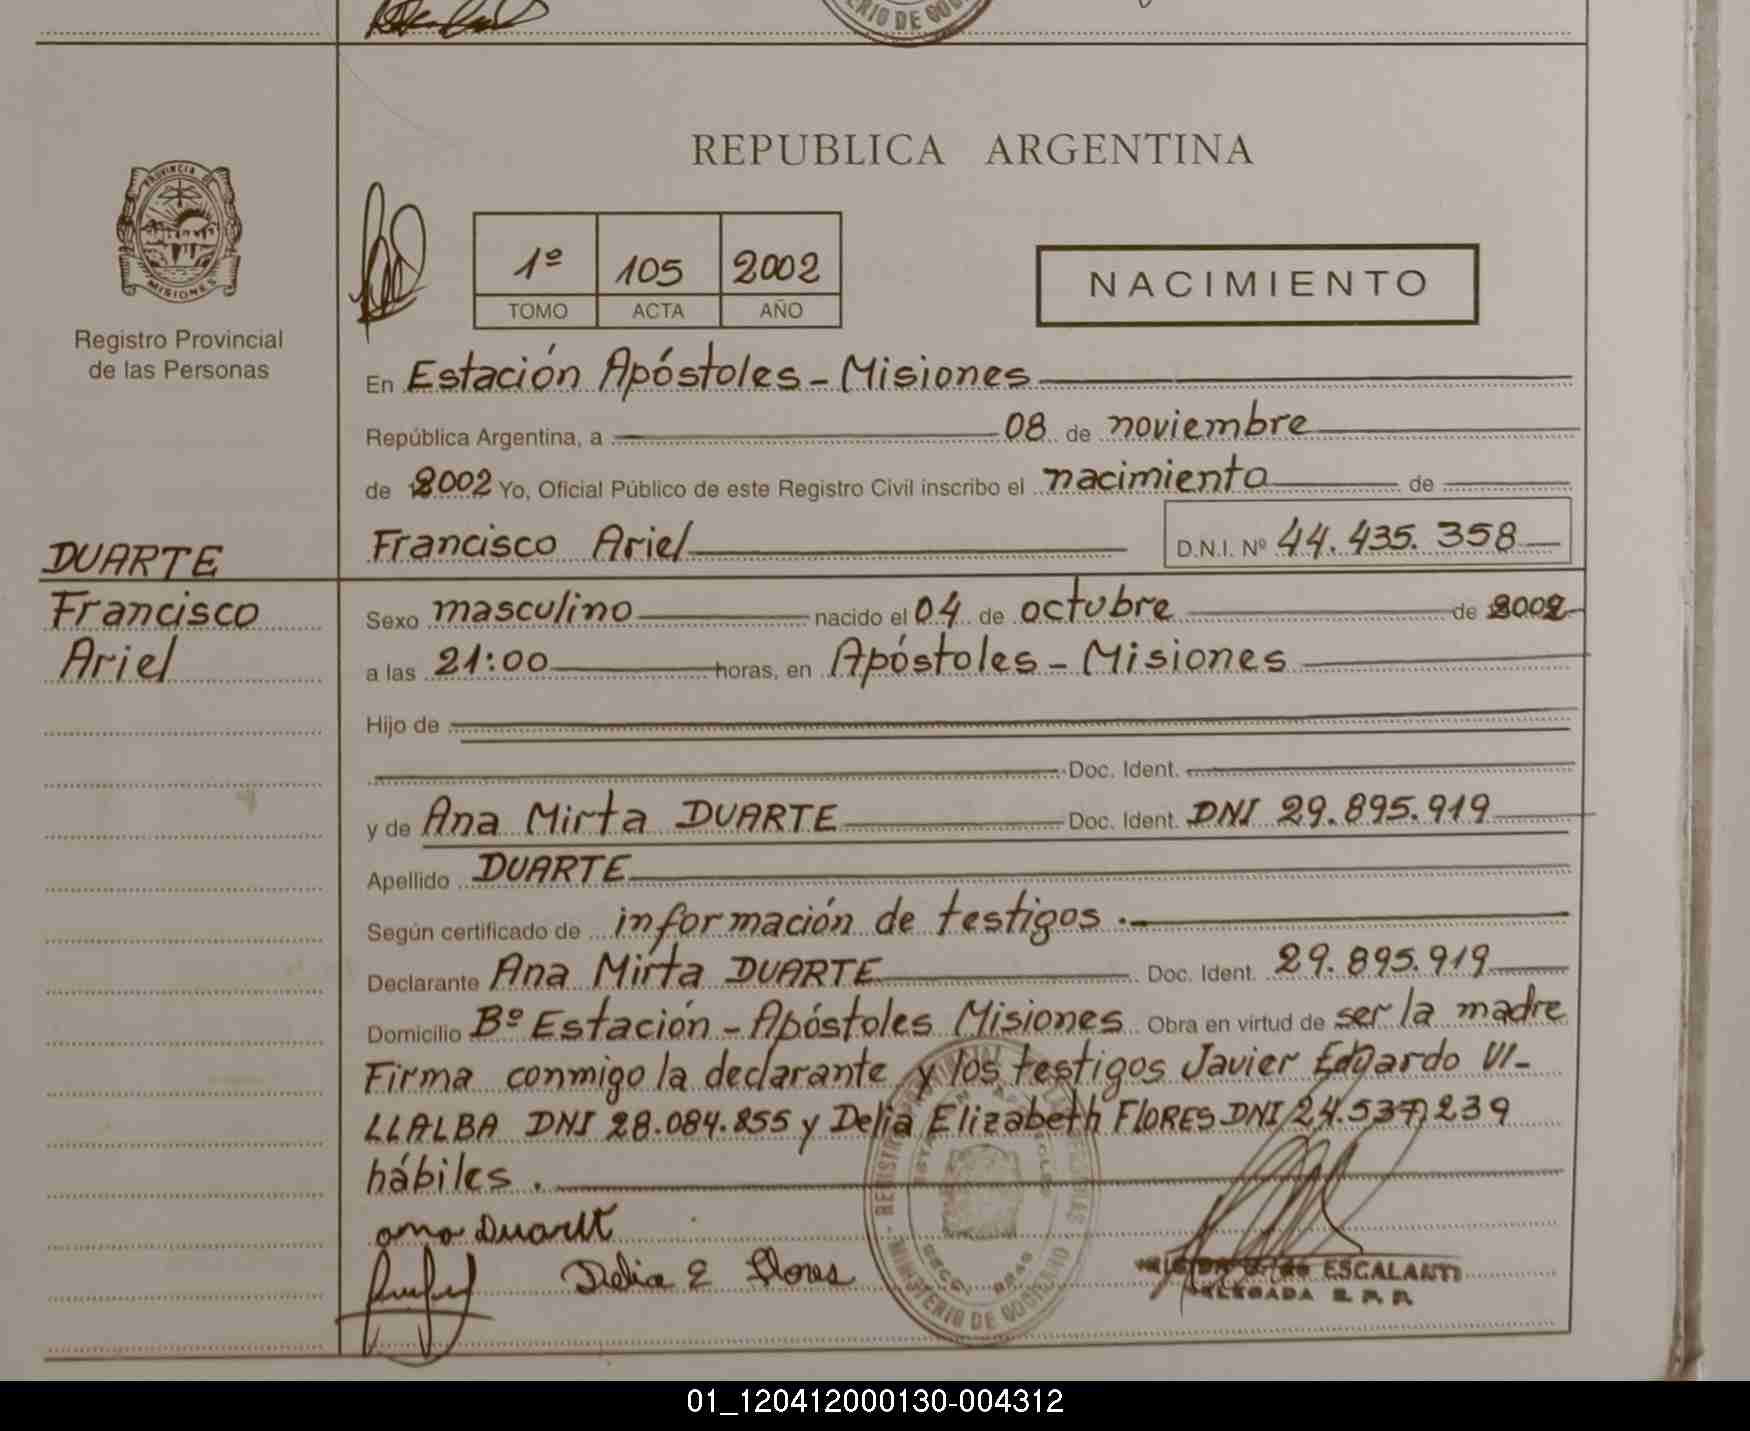 REPUBLICA ARGENTINA
PROVINCIA DE
MISIONES
Registro Provincial
de las Personas
1º 105 2002
TOMO ACTA AÑO
NACIMIENTO
En Estación Apóstoles - Misiones
República Argentina, a 08 de noviembre
de 2002 Yo, Oficial Público de este Registro Civil inscribo el nacimiento de
Francisco Ariel D.N.I. Nº 44.435.358
DUARTE
Francisco
Ariel
Sexo masculino nacido el 04 de octubre de 2002
a las 21:00 horas, en Apóstoles - Misiones
Hijo de
Doc. Ident.
y de Ana Mirta DUARTE Doc. Ident. DNI 29.895.919
Apellido DUARTE
Según certificado de información de testigos.
Declarante Ana Mirta DUARTE Doc. Ident. 29.895.919
Domicilio Bº Estación - Apóstoles Misiones Obra en virtud de ser la madre
Firma conmigo la declarante y los testigos Javier Edgardo VI-
LLALBA DNI 28.084.855 y Delia Elizabeth FLORES DNI 24.537.239
hábiles.
Ana Duarte
Delia E Flores
ESCALANTE
DELEGADA R. P. P.
MINISTERIO DE GOBIERNO
01_120412000130-004312